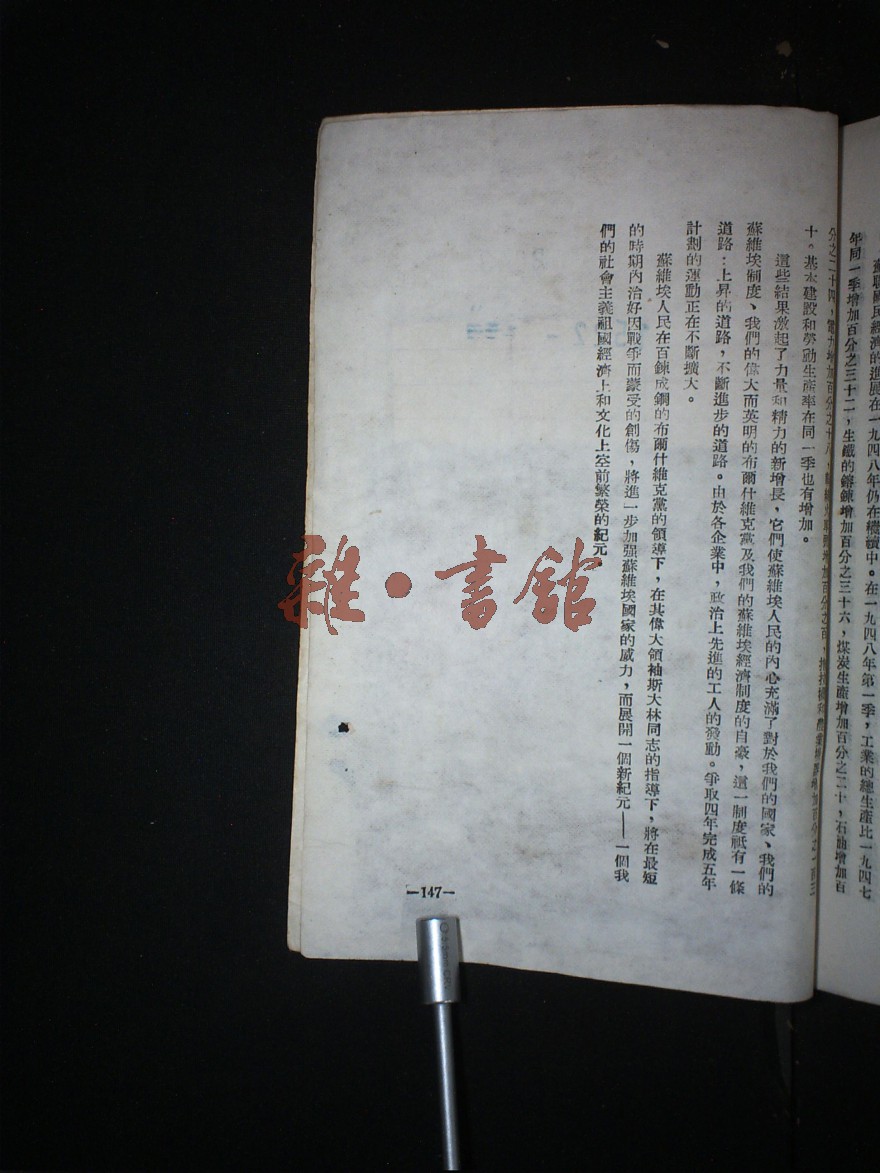 蘇聯國民經濟的進展在一九四八年仍在繼續中。在一九四八年第一季，工業的總生產比一九四七
年同一季增加百分之三十二，生鐵的鎔鍊增加百分之三十六，煤炭生產增加百分之二十，石油增加百
分之二十四，電力增加百分之十八，增加百分之百，增加百分之一百三
十。基本建設和勞動生產率在同一季也有增加。
這些結果激起了力量和精力的新增長，它們使蘇維埃人民的內心充滿了對於我們的國家、我們的
蘇維埃制度、我們的偉大而英明的布爾什維克黨及我們的蘇維埃經濟制度的自豪，這一制度祗有一條
道路：上昇的道路，不斷進步的道路。由於各企業中，政治上先進的工人的發動。爭取四年完成五年
計劃的運動正在不斷擴大。
蘇維埃人民在百鍊成鋼的布爾什維克黨的領導下，在其偉大領袖斯大林同志的指導下，將在最短
的時期內治好因戰爭而蒙受的創傷，將進一步加强蘇維埃國家的威力，而展開一個新紀元——一個我
們的社會主義祖國經濟上和文化上空前繁榮的紀元
—147—
雜·書館